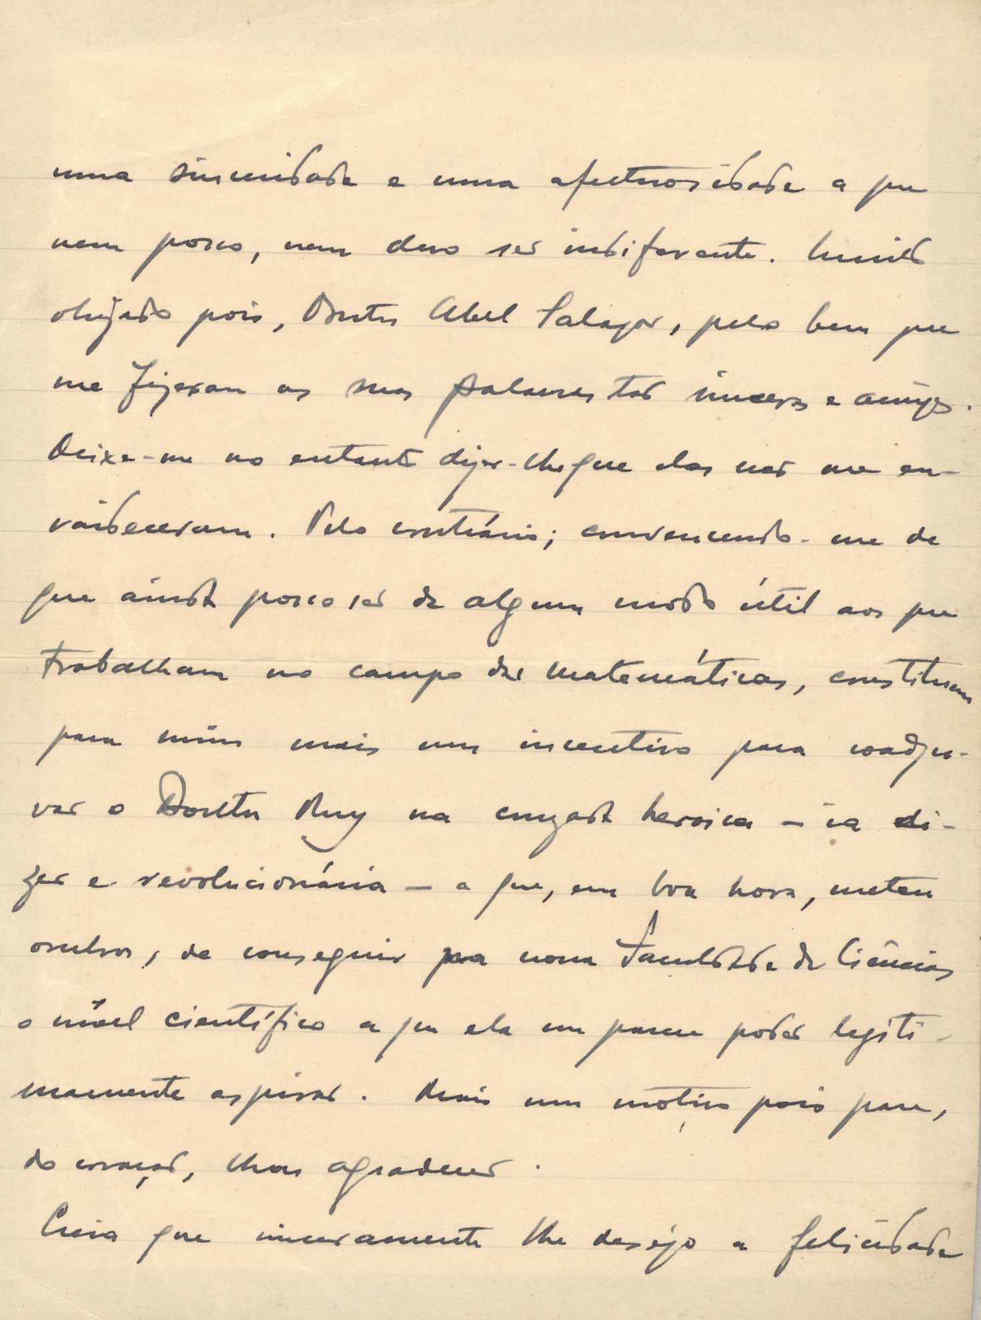 uma sinceridade e uma afectuosidade a que
nem posso, nem devo ser indiferente. Muito
obrigado pois, Doutor Abel Salazar, pelo bem que
me fizeram as suas palavras tão sinceras e amigas.
Deixe-me no entanto dizer-lhe que elas não me en-
vaideceram. Pelo contrário; convencendo-me de
que ainda posso ser de algum modo útil aos que
trabalham no campo das matemáticas, constituem
para mim mais um incentivo para coadju-
var o Doutor Ruy na cruzada heroica — ia di-
zer e revolucionária — a que, em boa hora, meteu
ombros, de conseguir pra nossa Faculdade de Ciências
o nível científico a que ela me parece poder legiti-
mamente aspirar. Mais um motivo pois para,
do coração, lhas agradecer.
Creia que sinceramente lhe desejo a felicidade